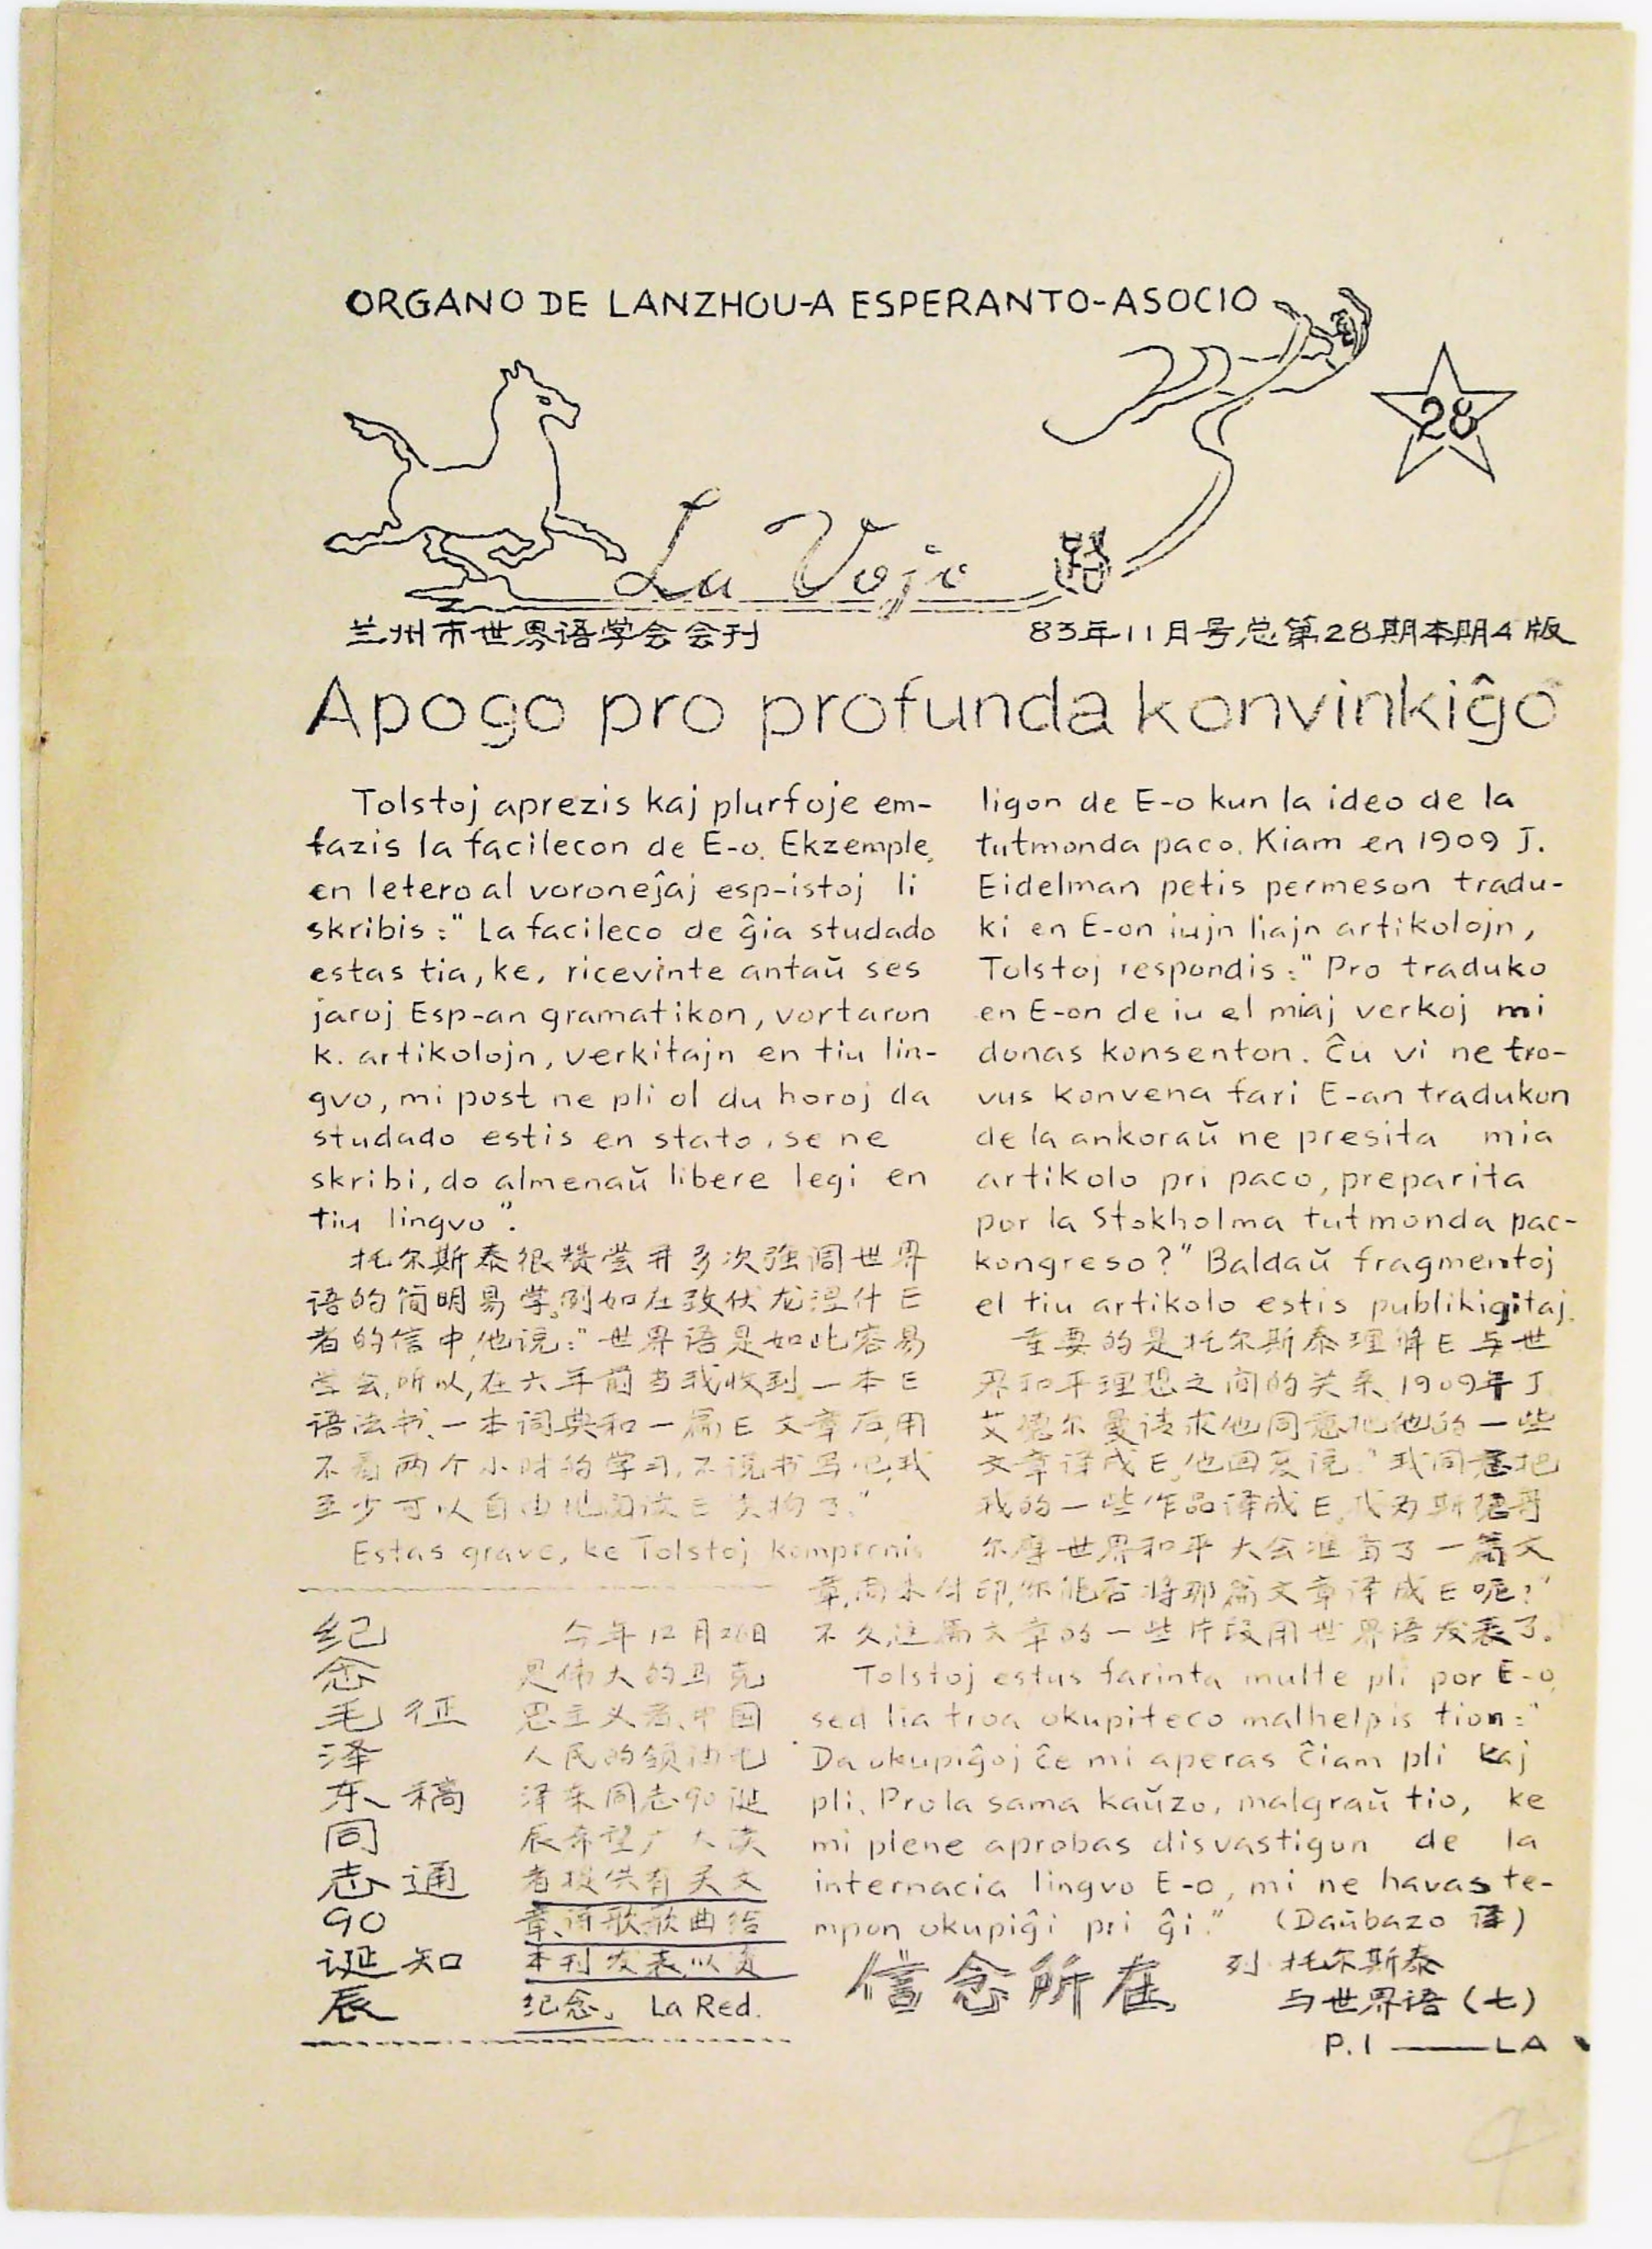 ORGANO DE LANZHOU-A ESPERANTO-ASOCIO
28
La Vojo
路
兰州市世界语学会会刊
83年11月号总第28期本期4版
Apogo pro profunda konvinkiĝo
Tolstoj aprezis kaj plurfoje em-
fazis la facilecon de E-o. Ekzemple,
en letero al voroneĵaj esp-istoj li
skribis: "La facileco de ĝia studado
estas tia, ke, ricevinte antaŭ ses
jaroj Esp-an gramatikon, vortaron
k. artikolojn, verkitajn en tiu lin-
gvo, mi post ne pli ol du horoj da
studado estis en stato, se ne
skribi, do almenaŭ libere legi en
tiu lingvo".
托尔斯泰很赞尝并多次强调世界
语的简明易学。例如在致伏龙涅什E
者的信中,他说:"世界语是如此容易
学会,所以,在六年前当我收到一本E
语法书、一本词典和一篇E文章后,用
不着两个小时的学习,不说书写吧,我
至少可以自由地阅读E读物了."
Estas grave, ke Tolstoj komprenis
ligon de E-o kun la ideo de la
tutmonda paco. Kiam en 1909 J.
Eidelman petis permeson tradu-
ki en E-on iujn liajn artikolojn,
Tolstoj respondis: "Pro traduko
en E-on de iu el miaj verkoj mi
donas konsenton. Ĉu vi ne tro-
vus konvena fari E-an tradukon
de la ankoraŭ ne presita mia
artikolo pri paco, preparita
por la Stokholma tutmonda pac-
kongreso?" Baldaŭ fragmentoj
el tiu artikolo estis publikigitaj.
重要的是托尔斯泰理解E与世
界和平理想之间的关系.1909年J.
艾德尔曼请求他同意把他的一些
文章译成E,他回复说:"我同意把
我的一些作品译成E,我为斯德哥
尔摩世界和平大会准备了一篇文
章,尚未付印,你能否将那篇文章译成E呢?"
不久,这篇文章的一些片段用世界语发表了。
Tolstoj estus farinta multe pli por E-o,
sed lia troa okupiteco malhelpis tion:"
Da okupiĝoj ĉe mi aperas ĉiam pli kaj
pli. Pro la sama kaŭzo, malgraŭ tio, ke
mi plene aprobas disvastigon de la
internacia lingvo E-o, mi ne havas te-
mpon okupiĝi pri ĝi." (Daŭbazo 译)
信念所在
列·托尔斯泰
与世界语(七)
纪念毛泽东同志90诞辰
征稿通知
今年12月26日
是伟大的马克
思主义者、中国
人民的领袖毛
泽东同志90诞
辰希望广大读
者提供有关文
章、诗歌歌曲给
本刊发表,以资
纪念。 La Red.
P.1 ——LA